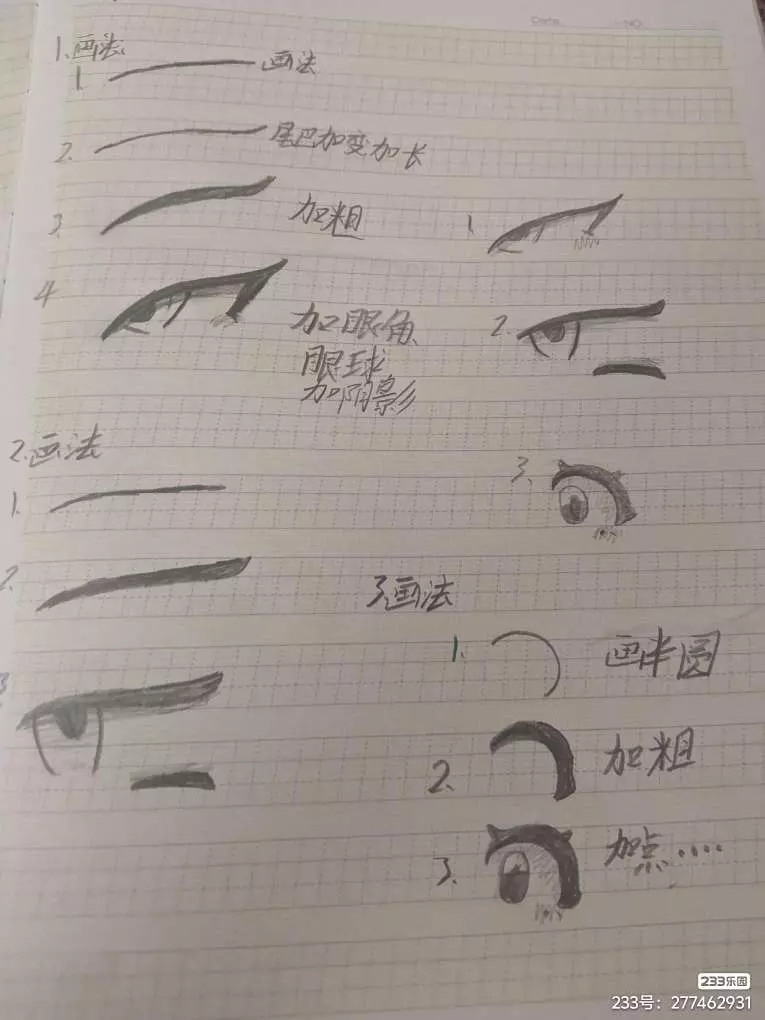 Date NO
1.画法
1. 画法
2. 尾巴加变加长
3. 加粗
4 加眼角
眼球
加阴影
1.
2.
3.
2.画法
1.
2.
3
3画法
1. 画半圆
2. 加粗
3. 加点....
233乐园
233号：277462931